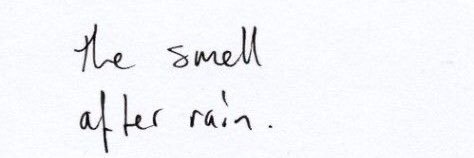 the smell
after rain.